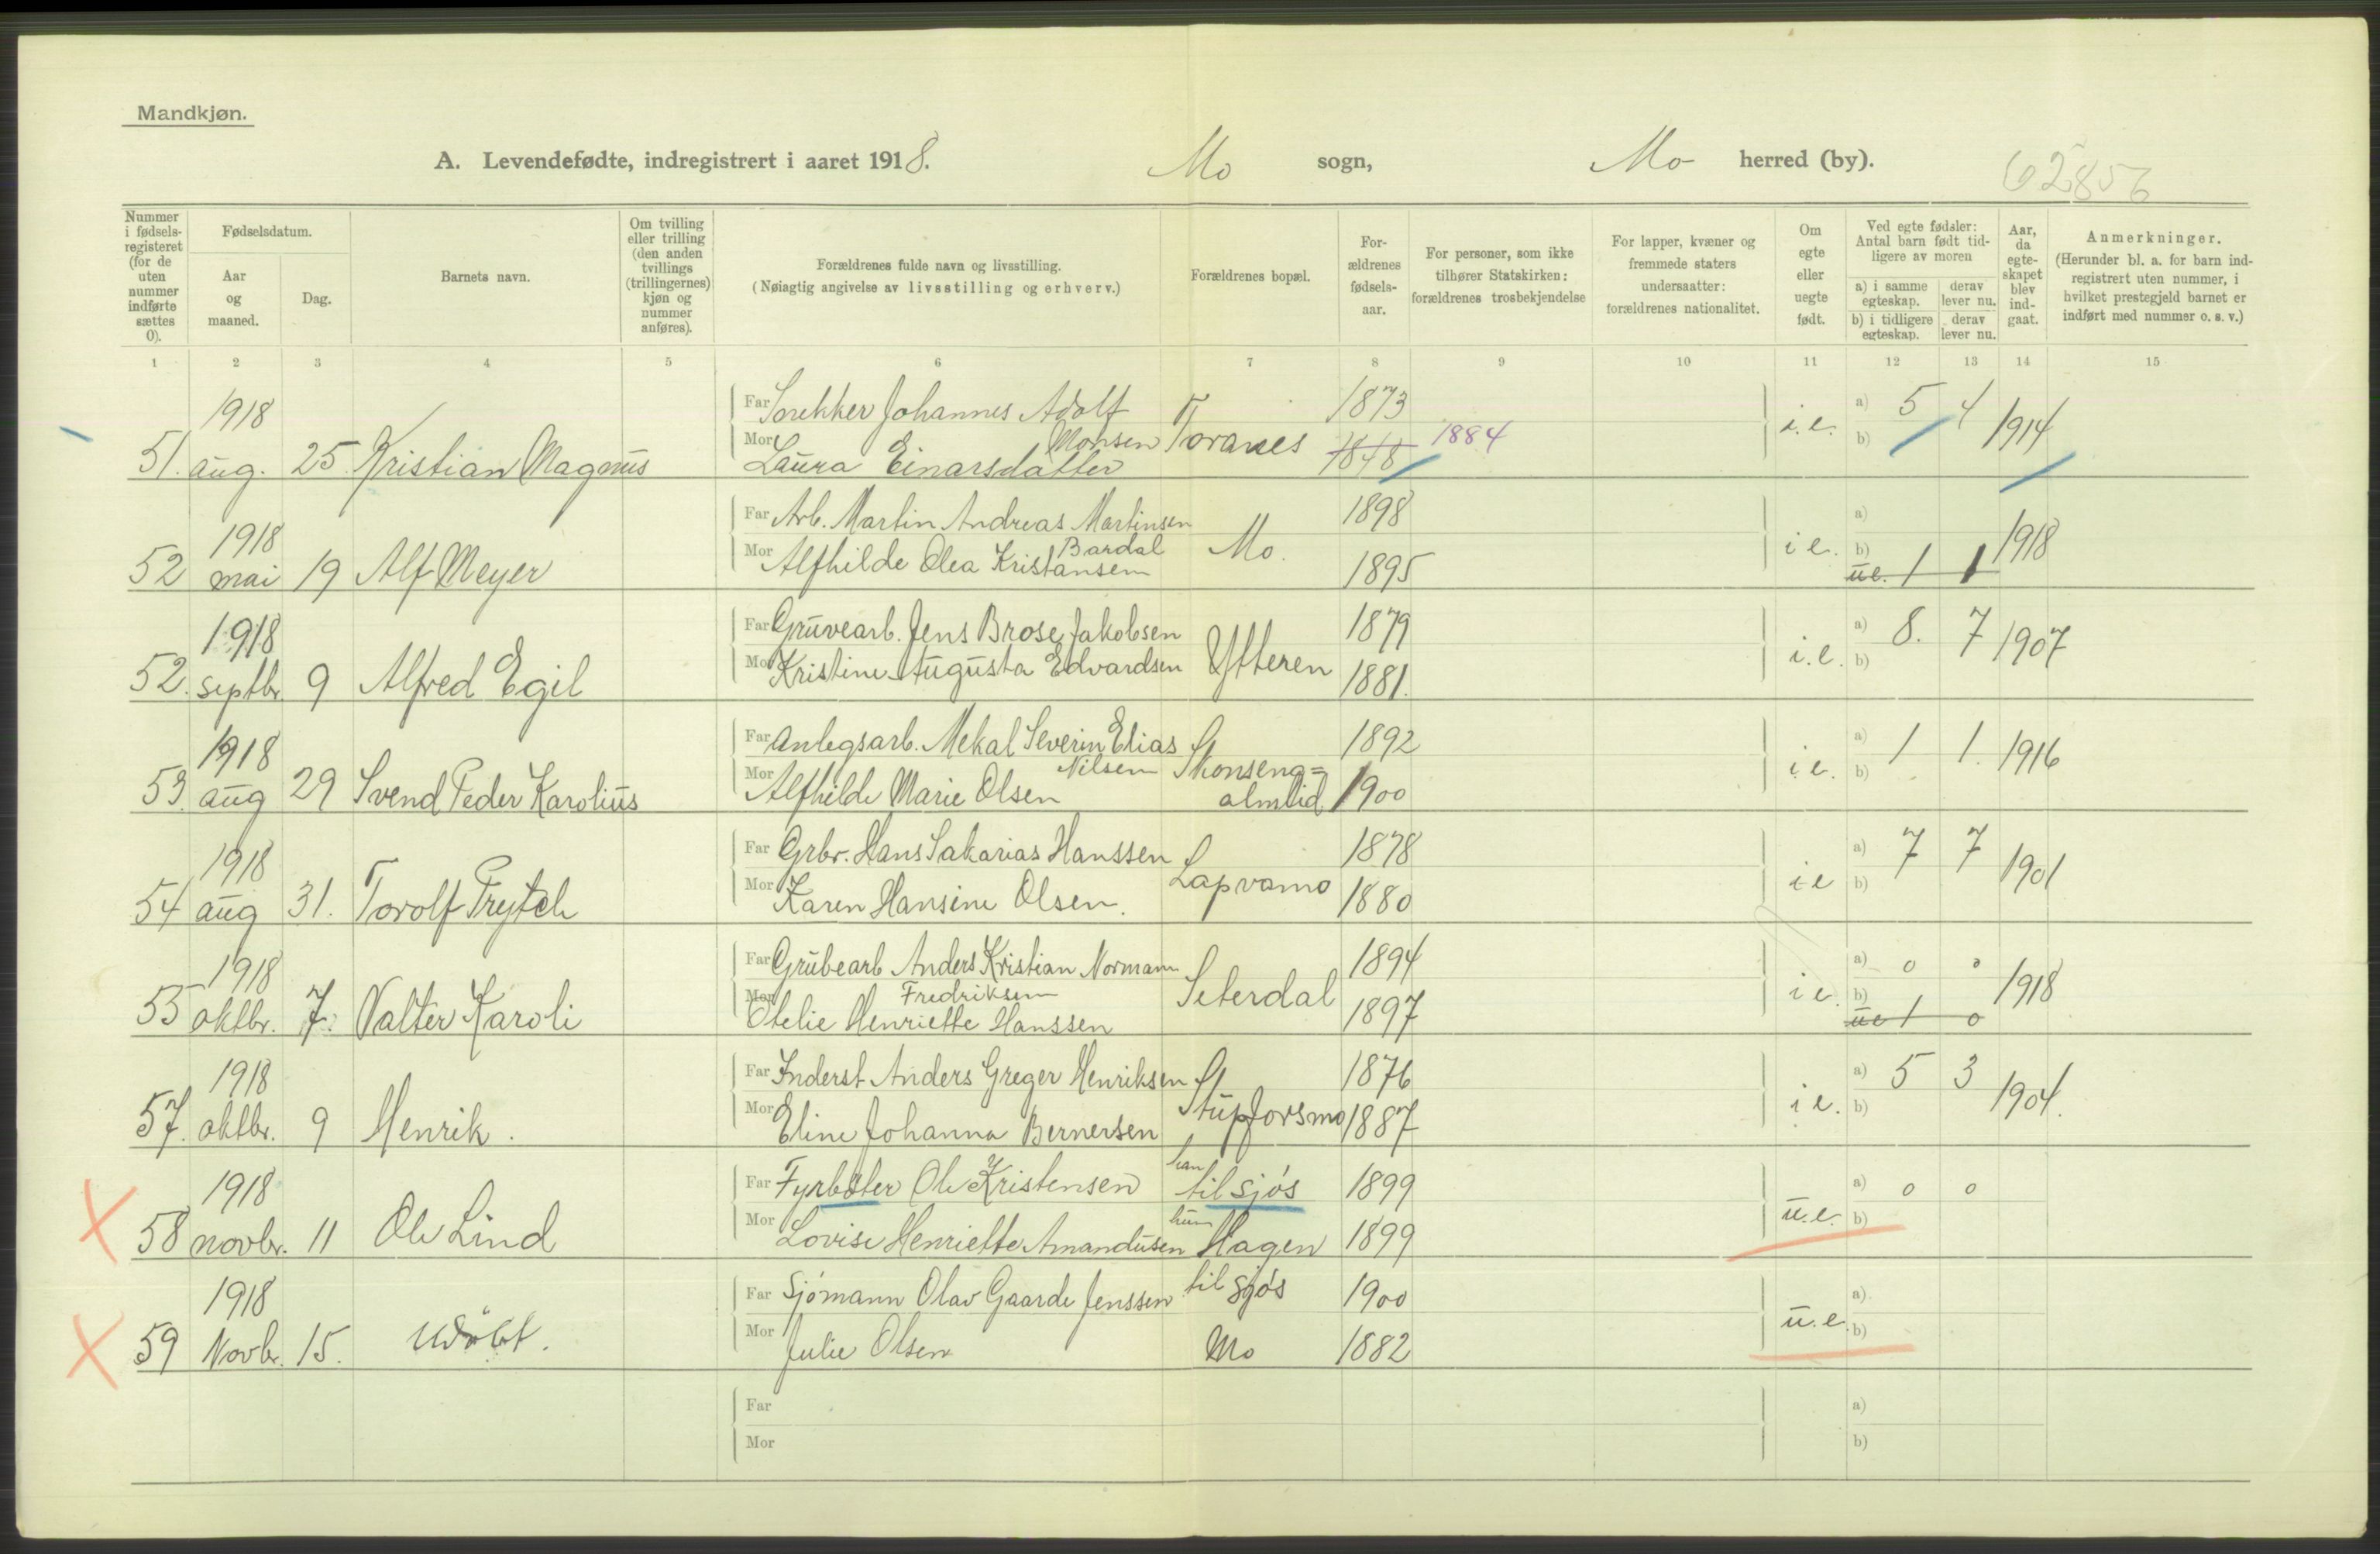 Mandkjøn.
A. Levendefødte, indregistrert i aaret 1918. Mo sogn, Mo herred (by). 62856
Nummer i fødselsregisteret (for de uten nummer indførte sættes 0).
Fødselsdatum.
Aar og maaned.
Dag.
Barnets navn.
Om tvilling eller trilling (den anden tvillings (trillingernes) kjøn og nummer anføres).
Forældrenes fulde navn og livsstilling.
(Nøiagtig angivelse av livsstilling og erhverv.)
Forældrenes bopæl.
Forældrenes fødselsaar.
For personer, som ikke tilhører Statskirken: forældrenes trosbekjendelse
For lapper, kvæner og fremmede staters undersaatter: forældrenes nationalitet.
Om egte eller uegte født.
Ved egte fødsler: Antal barn født tidligere av moren
a) i samme egteskap. derav lever nu.
b) i tidligere egteskap. derav lever nu.
Aar, da egteskapet blev indgaat.
Anmerkninger.
(Herunder bl. a. for barn indregistrert uten nummer, i hvilket prestegjeld barnet er indført med nummer o. s. v.)
1 2 3 4 5 6 7 8 9 10 11 12 13 14 15
1918 Far Snekker Johannes Adolf 1873 a) 5 4
Monsen Toranes i.e. 1914
51. aug. 25. Kristian Magnus Mor Laura Einarsdatter 1848 1884 b)
1918 Far Arb. Martin Andreas Martinsen 1898 a)
Bardal Mo. i e. 1918
52 mai 19 Alf Meyer Mor Alfhilde Olea Kristansen 1895 b) ue. 1 1
1918 Far Gruvearb. Jens Brose Jakobsen 1879 a) 8. 7
Ytteren i.e. 1907
52. septbr. 9 Alfred Egil Mor Kristine Augusta Edvardsen 1881. b)
1918 Far Anlegsarb. Mekal Severin Elias 1892 a) 1 1.
Nilsen Skonseng= i e. 1916
53. aug 29 Svend Peder Karolius Mor Alfhilde Marie Olsen 1900 b)
1918 Far Grbr. Hans Sakarias Hanssen 1878 a) 7 7
Lapvamo i e 1901
54 aug 31. Torolf Mor Karen Hansine Olsen. 1880 b)
1918 Far Grubearb Anders Kristian Normann 1894 a) 0 0
Fredriksen Seterdal i e. 1918
55 oktbr. 7. Valter Karoli Mor Otelie Henriette Hanssen 1897 b) ue 1 0
1918 Far Inderst Anders Greger Henriksen 1876 a) 5 3
Stupforsmo i e. 1904.
57. oktbr. 9 Henrik. Mor Eline Johanna Bernersen 1887 b)
1918 Far Fyrbøter Ole Kristensen han til sjøs 1899 a) 0 0
u.e.
58 novbr. 11 Ole Lind Mor Lovise Henriette Amandusen hun Hagen 1899 b)
1918 Far Sjømann Olav Gaarde Jenssen til sjøs 1900 a)
u.e.
59 Novbr. 15. Udøbt. Mor Julie Olsen Mo 1882 b)
Far a)
Mor b)